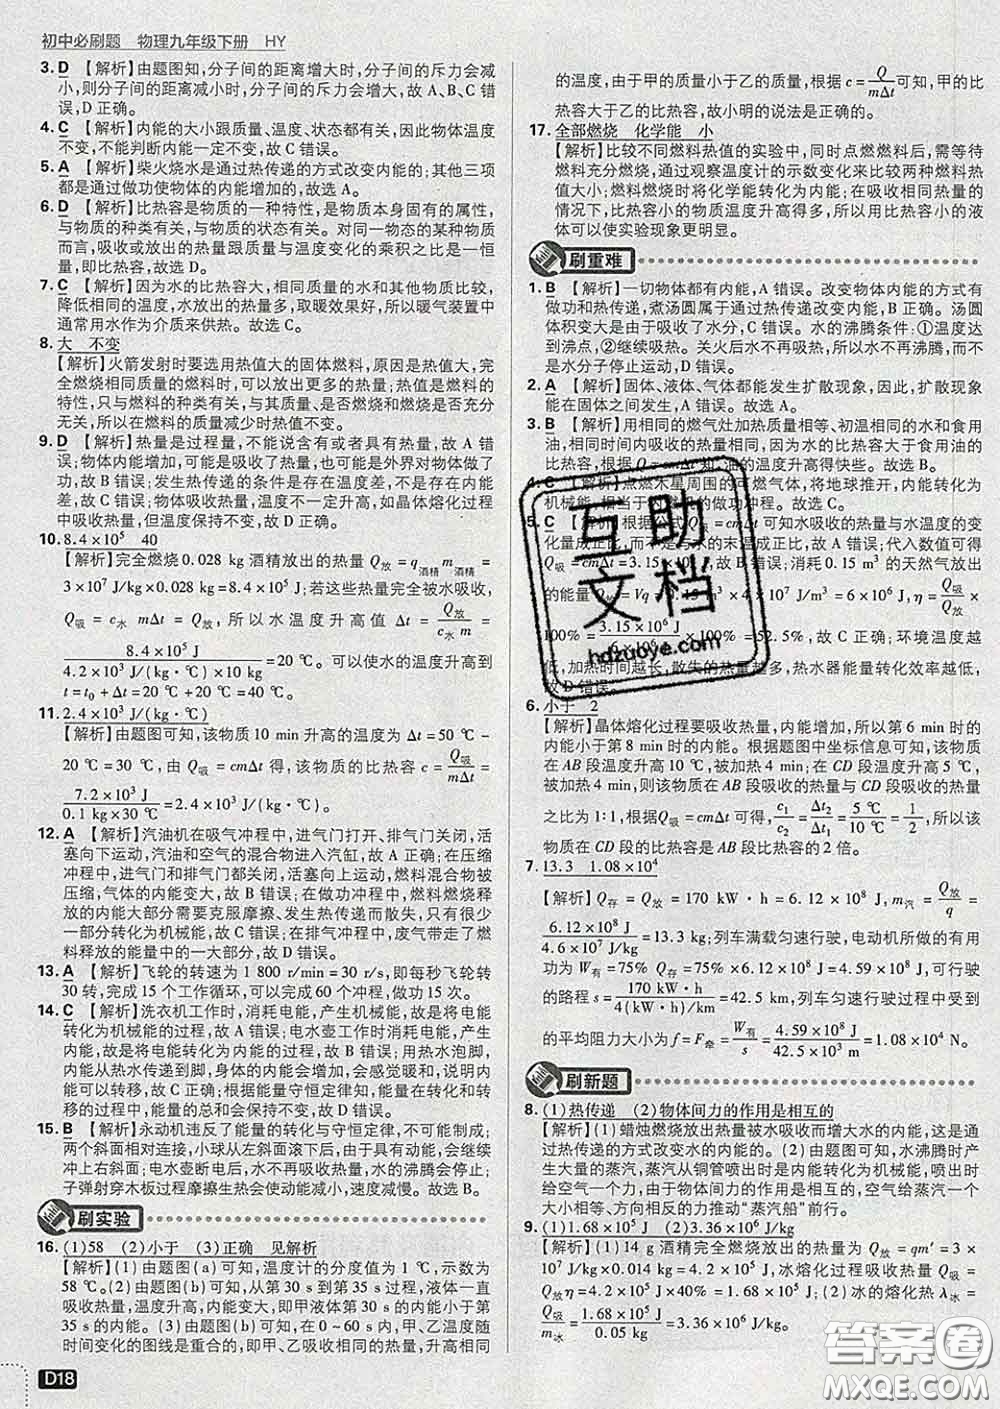 初中必刷题 物理九年级下册 HY
3. D 【解析】由题图知,分子间的距离增大时,分子间的斥力会减
小,则分子间的距离减小时,分子间的斥力会增大,故 A、B、C 错
误,D 正确。
4. C 【解析】内能的大小跟质量、温度、状态都有关,因此物体温度
不变,不能判断内能一定不变,故 C 错误。
5. A 【解析】柴火烧水是通过热传递的方式改变内能的;其他三项
都是通过做功使物体的内能增加的,故选 A。
6. D 【解析】比热容是物质的一种特性,是物质本身固有的属性,
与物质的种类有关,与物质的状态有关。对同一物态的某种物质
而言,吸收或放出的热量跟质量与温度变化的乘积之比是一恒
量,即比热容,故选 D。
7. C 【解析】因为水的比热容大,相同质量的水和其他物质比较,
降低相同的温度,水放出的热量多,取暖效果好,所以暖气装置中
通常用水作为介质来供热。故选 C。
8. 大 不变
【解析】火箭发射时要选用热值大的固体燃料,原因是热值大,
完全燃烧相同质量的燃料时,可以放出更多的热量;热值是燃料
的特性,只与燃料的种类有关,与质量、是否燃烧和燃烧是否充分
无关,所以在燃料的质量减少时热值不变。
9. D 【解析】热量是过程量,不能说含有或者具有热量,故 A 错
误;物体内能增加,可能是吸收了热量,也可能是外界对物体做了
功,故 B 错误;发生热传递的条件是存在温度差,不是存在内能
差,故 C 错误;物体吸收热量,温度不一定升高,如晶体熔化过程
中吸收热量,但温度保持不变,故 D 正确。
10. 8.4×10⁵ 40
【解析】完全燃烧 0.028 kg 酒精放出的热量 Q放 = q酒精 m酒精 =
3×10⁷ J/kg×0.028 kg=8.4×10⁵ J;若这些热量完全被水吸收,
Q吸 = c水 mΔt = Q放,所以水温度升高值 Δt = Q放/(c水 m) =
8.4×10⁵ J/(4.2×10³ J/(kg·℃)×5 kg)=20 ℃。可以使水的温度升高到
t=t₀+Δt=20 ℃+20 ℃=40 ℃。
11. 2.4×10³ J/(kg·℃)
【解析】由题图可知,该物质 10 min 升高的温度为 Δt=50 ℃-
20 ℃=30 ℃,由 Q吸=cmΔt 得,该物质的比热容 c=Q吸/(mΔt)=
7.2×10³ J/(0.1 kg×30 ℃)=2.4×10³ J/(kg·℃)。
12. A 【解析】汽油机在吸气冲程中,进气门打开、排气门关闭,活
塞向下运动,汽油和空气的混合物进入汽缸,故 A 正确;在压缩
冲程中,进气门和排气门都关闭,活塞向上运动,燃料混合物被
压缩,气体的内能变大,故 B 错误;在做功冲程中,燃料燃烧释
放的内能大部分需要克服摩擦、发生热传递而散失掉,只有很少
一部分转化为机械能,故 C 错误;在排气冲程中,废气带走了燃
料释放的能量中的一大部分,故 D 错误。
13. A 【解析】飞轮的转速为 1 800 r/min=30 r/s,即每秒飞轮转
30 转,完成 15 个工作循环,可以完成 60 个冲程,做功 15 次。
14. C 【解析】洗衣机工作时,消耗电能,产生机械能,故是将电能
转化为机械能的过程,故 A 错误;电水壶工作时消耗电能,产生
内能,故是将电能转化为内能的过程,故 B 错误;用热水泡脚,
内能从热水中传递到了脚上,会感觉暖和,故说明能量在一定条
件时可以转移,故 C 正确;根据能量守恒定律知,能量在转化和转移
过程中,能量的总和会保持不变,故 D 错误。
15. B 【解析】永动机违反了能量的转化与守恒定律,不可能制成;
两个斜面相对连接,小球从左斜面滚下后,由于具有动能,会继续
冲上右斜面;电水壶断电后,由于不能继续吸热,水的沸腾会停止;
子弹射穿木板过程摩擦生热会使动能减小,速度减慢。故选 B。
刷实验
16. (1)58 (2)小于 (3)正确 见解析
【解析】(1)由题图(a)可知,温度计的分度值为 1 ℃,示数为
58 ℃。(2)由题图(b)可知,从第 30 s 到第 35 s 过程,液体一直
吸收热量,温度升高,内能变大,即甲液体第 30 s 的内能小于第
35 s 的内能。(3)由题图(b)可知,在 0～60 s 内,甲、乙温度随
时间变化的图线是重合的,即甲、乙吸收相同的热量,升高相同
D18
的温度,由于甲的质量小于乙的质量,根据 c=Q/(mΔt)可知,甲的比
热容大于乙的比热容,故小明的说法是正确的。
17. 全部燃烧 化学能 小
【解析】比较不同燃料热值的实验中,同时点燃燃料后,需等待
燃料充分燃烧,通过观察温度计的示数变化来比较两种燃料热
值大小;燃料燃烧时将化学能转化为内能;在吸收相同热量的
情况下,比热容小的物质温度升高得多,所以用比热容小的液
体可以使实验现象更明显。
刷重难
1. B 【解析】一切物体都有内能,A 错误。改变物体内能的方式有
做功和热传递,煮汤圆属于通过热传递改变内能,B 正确。汤圆
体积变大是由于吸收了水分,C 错误。水的沸腾条件:①温度达
到沸点,②继续吸热。关火后水不再吸热,所以水不再沸腾,而不
是水分子停止运动,D 错误。
2. A 【解析】固体、液体、气体都能发生扩散现象,因此,扩散现象
能在固体之间发生,A 错误。故选 A。
3. B 【解析】用相同的燃气灶加热质量相等、初温相同的水和食用
油,相同时间内吸收的热量相同,因为水的比热容大于食用油的
比热容,根据 Q=cmΔt 知,油的温度升高得快些。故选 B。
4. C 【解析】点燃木星周围的可燃气体,将地球推开,内能转化为
机械能,相当于 的做功冲程。故选 C。
5. C 【解析】根据公式 Q吸=cmΔt 可知水吸收的热量与水温度的变
化量成正比,而不是与水的末温成正比,故 A 错误;代入数值可得
Q吸=cmΔt=3.15×10⁶ J,故 B 错误;消耗 0.15 m³ 的天然气放出
的能量 Q放=Vq=0.15 m³×4×10⁷ J/m³=6×10⁶ J,η=Q吸/Q放×
100%=3.15×10⁶ J/(6×10⁶ J)×100%=52.5%,故 C 正确;环境温度越
低,加热时间越长,散失的热量越多,热水器能量转化效率越低,
故 D 错误。
6. 小于 2
【解析】晶体熔化过程要吸收热量,内能增加,所以第 6 min 时的
内能小于第 8 min 时的内能。根据题图中坐标信息可知,该物质
在 AB 段温度升高 10 ℃,被加热 4 min,在 CD 段温度升高 5 ℃,
被加热 4 min,则该物质在 AB 段吸收的热量与 CD 段吸收热量
之比为 1:1,根据 Q吸=cmΔt 可得,c₁/c₂=Δt₂/Δt₁=5 ℃/10 ℃=1/2,所以该
物质在 CD 段的比热容是 AB 段比热容的 2 倍。
7. 13.3 1.08×10⁴
【解析】Q存=Q放=170 kW·h=6.12×10⁸ J,m汽=Q放/q=
6.12×10⁸ J/(4.6×10⁷ J/kg)=13.3 kg;列车满载匀速行驶,电动机所做的有用
功为 W有=75% Q存=75%×6.12×10⁸ J=4.59×10⁸ J,可行驶
的路程 s=170 kW·h/(4 kW·h/km)=42.5 km,列车匀速行驶过程中受到
的平均阻力大小为 f=F牵=W有/s=4.59×10⁸ J/(42.5×10³ m)=1.08×10⁴ N。
刷新题
8. (1)热传递 (2)物体间力的作用是相互的
【解析】(1)蜡烛燃烧放出热量被水吸收而增大水的内能,这是
通过热传递的方式改变水的内能的。(2)由题可知,水沸腾时产
生大量的蒸汽,蒸汽从铜管喷出时是内能转化为机械能,喷出时
给空气一个力,由于物体间力的作用是相互的,空气给蒸汽一个
大小相等、方向相反的力推动“蒸汽船”前行。
9. (1)1.68×10⁵ J (2)3.36×10⁶ J/kg
【解析】(1)14 g 酒精完全燃烧放出的热量为 Q放=qm′=3×
10⁷ J/kg×0.014 kg=4.2×10⁵ J,冰熔化过程吸收的热量 Q吸=
Q放η=4.2×10⁵ J×40%=1.68×10⁵ J;(2)冰的熔化热 λ冰=
Q吸/m冰=1.68×10⁵ J/0.05 kg=3.36×10⁶ J/kg。
互助
文档
hdzuoye.com
答案圈
MXQE.COM